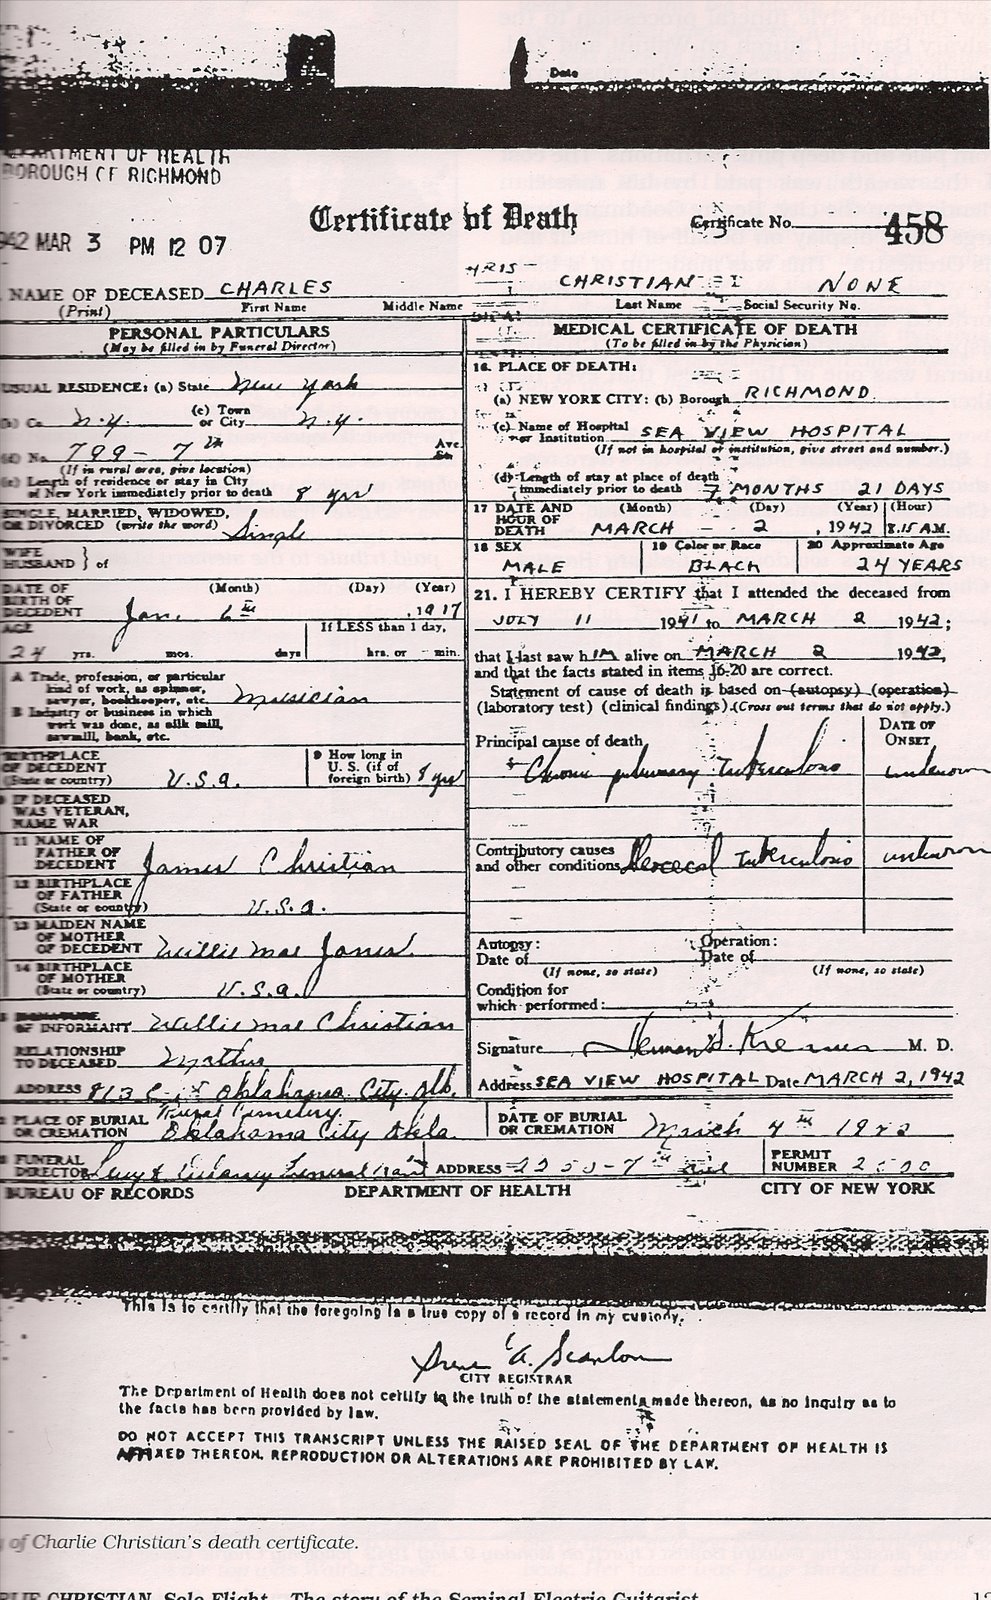 Date
DEPARTMENT OF HEALTH
BOROUGH OF RICHMOND
942 MAR 3 PM 12 07
Certificate of Death
Certificate No. 458
NAME OF DECEASED CHARLES CHRISTIAN NONE
(Print) First Name Middle Name Last Name Social Security No.
PERSONAL PARTICULARS
(May be filled in by Funeral Director)
USUAL RESIDENCE: (a) State New York
(b) Co. N.Y. (c) Town or City N.Y.
(d) No. 799 - 7th Ave. St.
(If in rural area, give location)
(e) Length of residence or stay in City
of New York immediately prior to death 8 yrs
SINGLE, MARRIED, WIDOWED,
OR DIVORCED (write the word) Single
WIFE
HUSBAND } of
DATE OF BIRTH OF DECEDENT (Month) (Day) (Year)
Jan. 6th, 1917
AGE If LESS than 1 day,
24 yrs. mos. days hrs. or min.
A Trade, profession, or particular
kind of work, as spinner,
sawyer, bookkeeper, etc. Musician
B Industry or business in which
work was done, as silk mill,
sawmill, bank, etc.
BIRTHPLACE
OF DECEDENT
(State or country) U.S.A.
9 How long in
U.S. (if of
foreign birth) 8 yrs
IF DECEASED
WAS VETERAN,
NAME WAR
11 NAME OF
FATHER OF
DECEDENT James Christian
12 BIRTHPLACE
OF FATHER
(State or country) U.S.A.
13 MAIDEN NAME
OF MOTHER
OF DECEDENT Willie Mae Jones.
14 BIRTHPLACE
OF MOTHER
(State or country) U.S.A.
SIGNATURE
OF INFORMANT Willie Mae Christian
RELATIONSHIP
TO DECEASED Mother
ADDRESS 813 Oklahoma City, Okla.
PLACE OF BURIAL
OR CREMATION Rural Cemetery. Oklahoma City Okla.
FUNERAL
DIRECTOR Funeral ADDRESS 7th ave
MEDICAL CERTIFICATE OF DEATH
(To be filled in by the Physician)
16. PLACE OF DEATH:
(a) NEW YORK CITY: (b) Borough RICHMOND
(c) Name of Hospital
or Institution SEA VIEW HOSPITAL
(If not in hospital or institution, give street and number.)
(d) Length of stay at place of death
immediately prior to death 7 MONTHS 21 DAYS
17 DATE AND
HOUR OF
DEATH (Month) (Day) (Year) (Hour)
MARCH - 2, 1942 8.15 A.M.
18 SEX 19 Color or Race 20 Approximate Age
MALE BLACK 24 YEARS
21. I HEREBY CERTIFY that I attended the deceased from
JULY 11 1941 to MARCH 2 1942;
that I last saw hIM alive on MARCH 2 1942,
and that the facts stated in items 16-20 are correct.
Statement of cause of death is based on (autopsy) (operation)
(laboratory test) (clinical findings). (Cross out terms that do not apply.)
Principal cause of death DATE OF ONSET
Chronic pulmonary Tuberculosis unknown
Contributory causes
and other conditions Ileocecal Tuberculosis unknown
Autopsy: Operation:
Date of Date of
(If none, so state) (If none, so state)
Condition for
which performed:
Signature M. D.
Address SEA VIEW HOSPITAL Date MARCH 2, 1942
DATE OF BURIAL
OR CREMATION March 4th
PERMIT
NUMBER
BUREAU OF RECORDS DEPARTMENT OF HEALTH CITY OF NEW YORK
This is to certify that the foregoing is a true copy of a record in my custody.
Scanlon
CITY REGISTRAR
The Department of Health does not certify to the truth of the statements made thereon, as no inquiry as to
the facts has been provided by law.
DO NOT ACCEPT THIS TRANSCRIPT UNLESS THE RAISED SEAL OF THE DEPARTMENT OF HEALTH IS
AFFIXED THEREON. REPRODUCTION OR ALTERATIONS ARE PROHIBITED BY LAW.
of Charlie Christian's death certificate.
CHARLIE CHRISTIAN, Solo Flight - The story of the Seminal Electric Guitarist